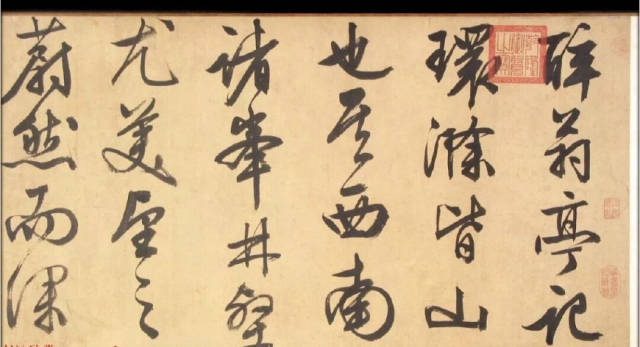 醉翁亭記
環滁皆山
也其西南
諸峯林壑
尤美望之
蔚然而深